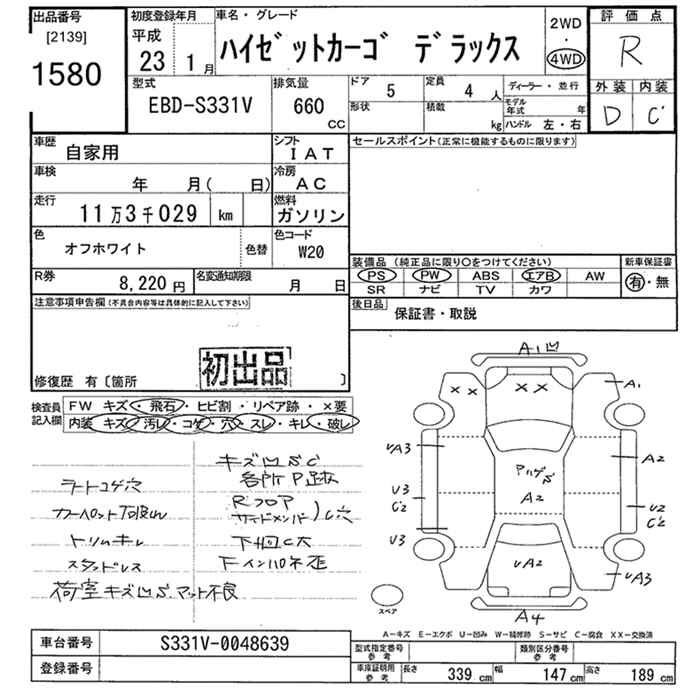 出品番号
[2139]
1580
初度登録年月
平成
23 1月
車名・グレード
ハイゼットカーゴ デラックス
2WD
・
4WD
評価点
R
外装 内装
D C'
型式
EBD-S331V
排気量
660
CC
ドア 5
定員 4 人
ディーラー・並行
形状
積載 kg
モデル年式 年
ハンドル 左・右
車歴
自家用
シフト
IAT
セールスポイント(正常に機能するものに限ります)
車検
年 月( 日)
冷房
AC
走行
11万3千029 km
燃料
ガソリン
色
オフホワイト
色替
色コード
W20
装備品 (純正品に限り○をつけてください)
新車保証書
PS PW ABS エアB AW
有・無
SR ナビ TV カワ
R券
8,220円
名変通知期限
月 日
後日品
保証書・取説
注意事項申告欄(不具合内容等は具体的に記入して下さい)
初出品
修復歴 有〔箇所 〕
検査員記入欄
FW キズ・飛石・ヒビ割・リペア跡・×要
内装 キズ・汚レ・コゲ・穴・スレ・キレ・破レ
キズ凹S C
各所P跡
シートコゲ穴
RフロアサイドメンバーC穴
トリムキレ
下回C大
スタッドレス
荷室キズ凹S.マット不良
A1凹
××
××
A1
UA3
A2
A2
U3
C2
U2
C2
U3
UA2
UA3
A4
スペア
A―キズ E―エクボ U―凹み W―補修跡 S―サビ C―腐食 XX―交換済
車台番号
S331V-0048639
登録番号
型式指定番号
参考
類別区分番号
参考
車庫証明用
参考
長さ 339 cm
幅 147 cm
高さ 189 cm